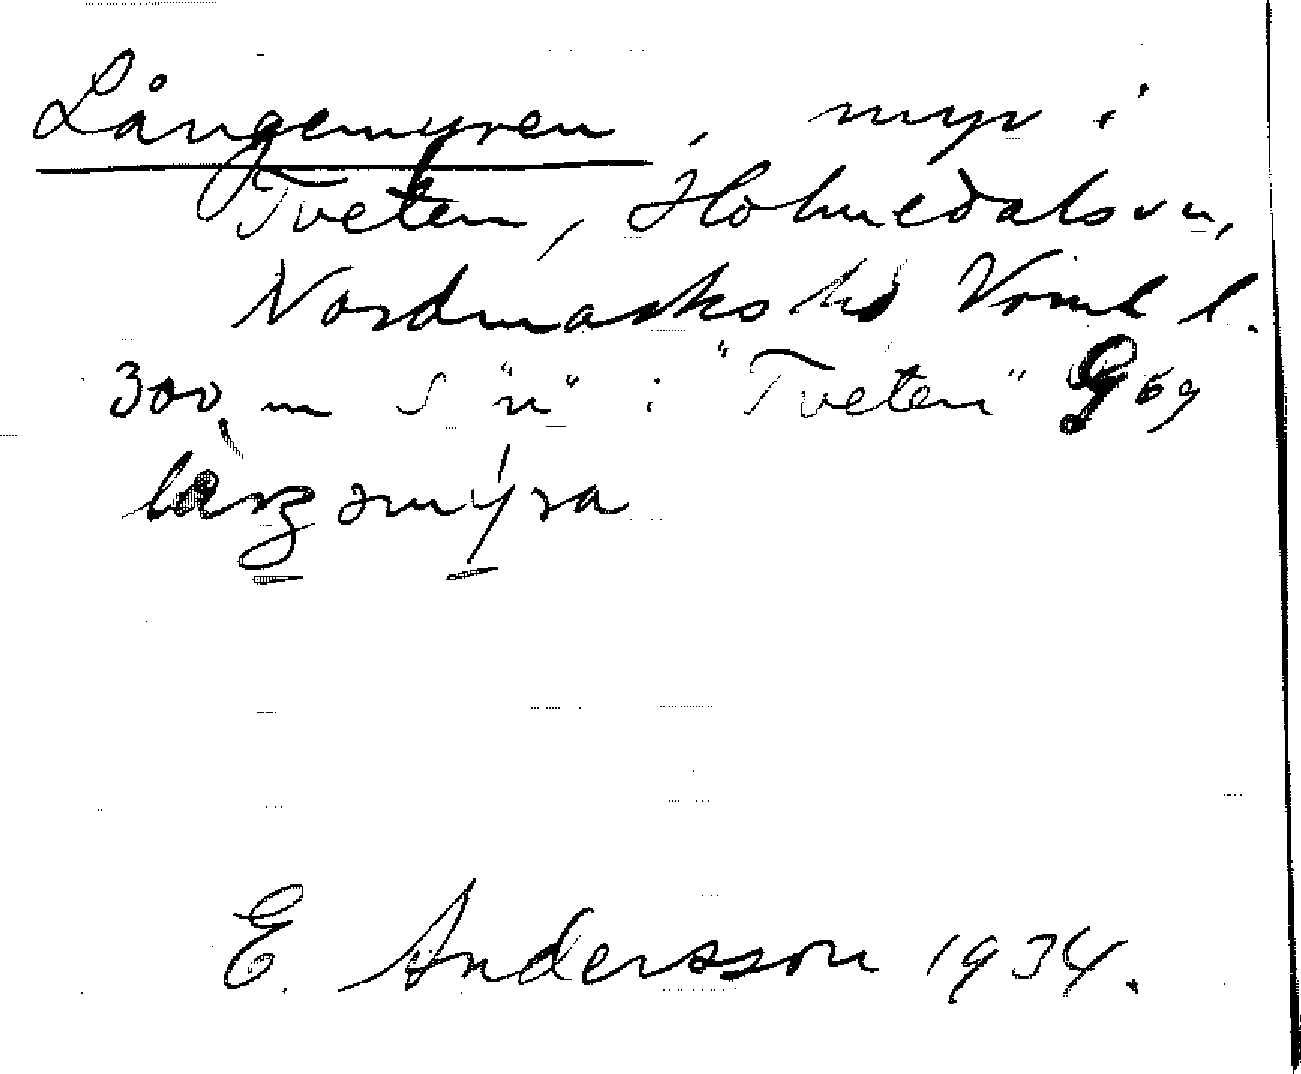 Långemyren, myr i
Tveten, Holmedals sn,
Nordmarks hd Vrml l.
300 m S "n" i "Tveten" G 69
E. Andersson 1934.